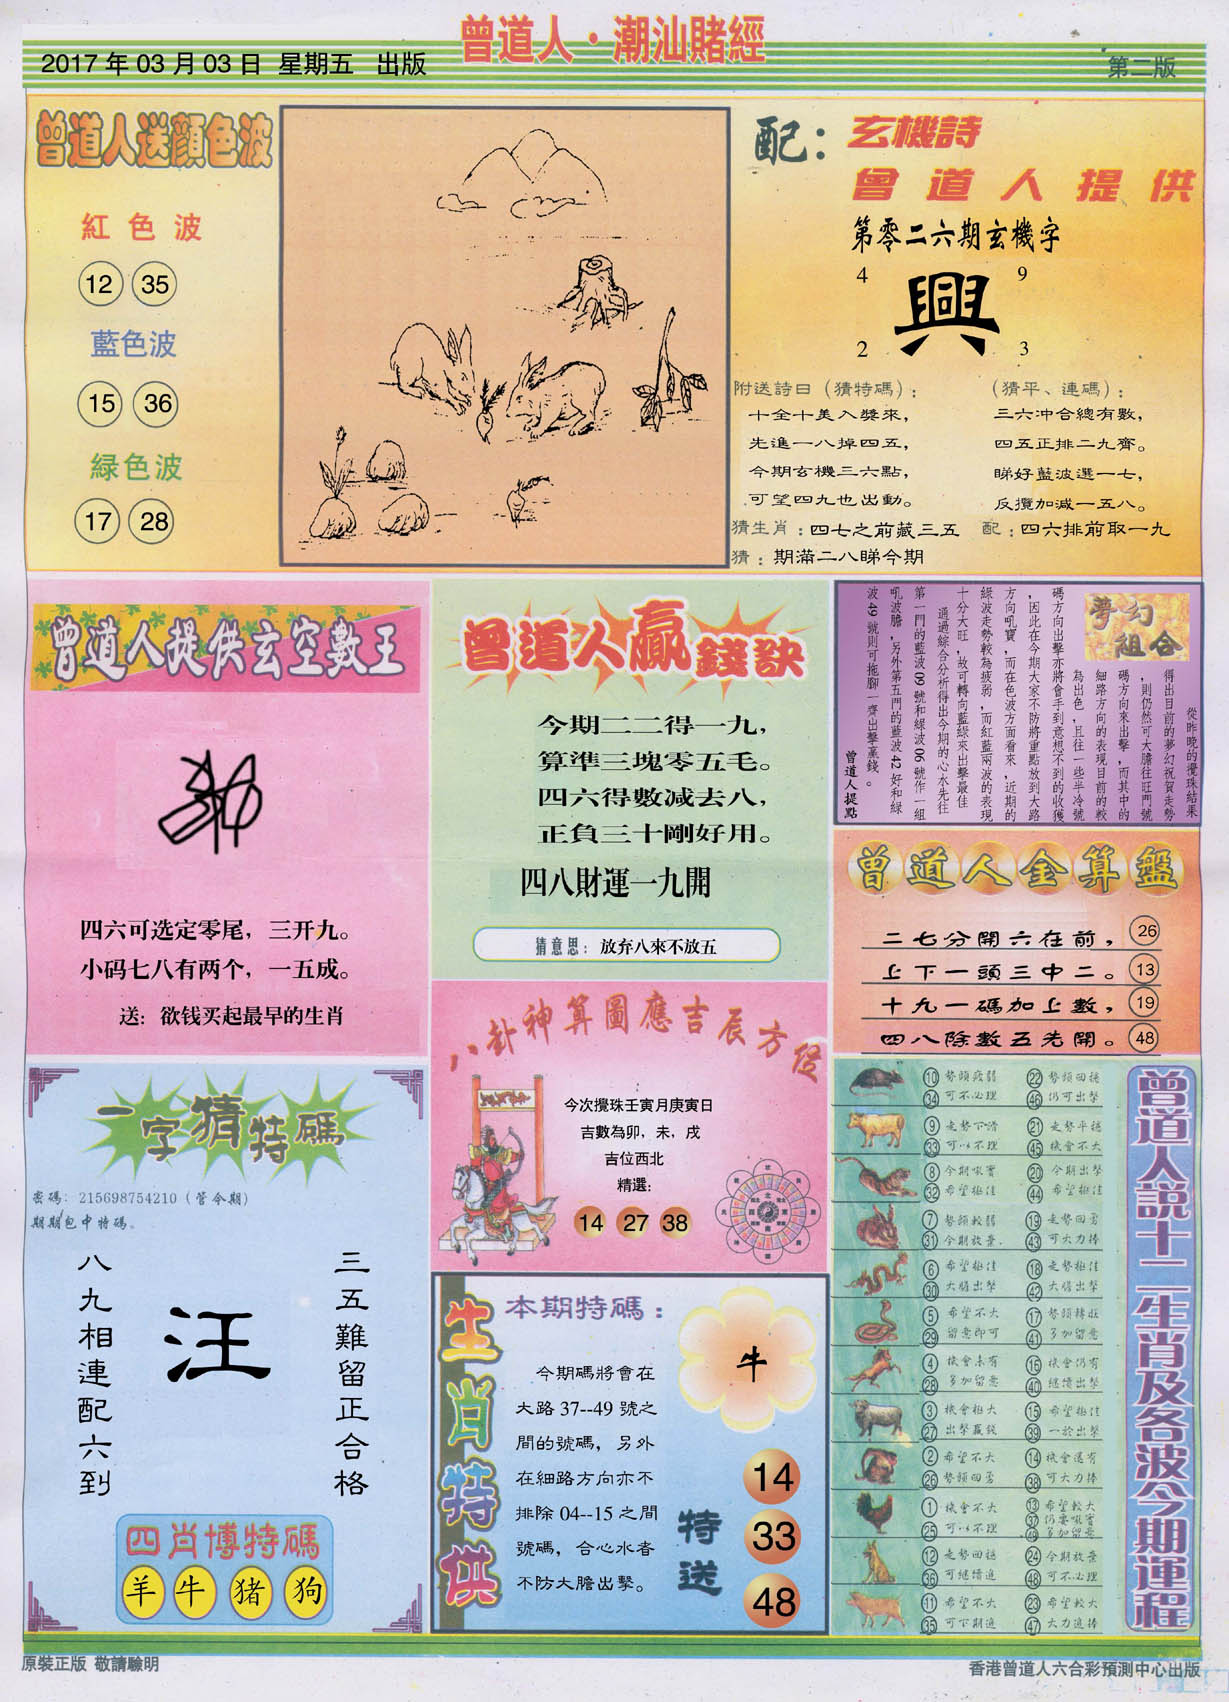 曾道人·潮汕賭經
2017 年 03 月 03 日 星期五 出版
第二版
曾道人送顏色波
紅色波
12 35
藍色波
15 36
緑色波
17 28
配：玄機詩
曾道人提供
第零二六期玄機字
4 9
興
2 3
附送詩曰（猜特碼）：
十全十美入獎來，
先進一八掉四五，
今期玄機三六點，
可望四九也出動。
（猜平、連碼）：
三六冲合總有數，
四五正排二九齊。
睇好藍波選一七，
反攬加減一五八。
猜生肖：四七之前藏三五
配：四六排前取一九
猜：期滿二八睇今期
曾道人提供玄空數王
四六可选定零尾，三开九。
小码七八有两个，一五成。
送：欲钱买起最早的生肖
曾道人贏錢訣
今期二二得一九，
算準三塊零五毛。
四六得數减去八，
正負三十剛好用。
四八財運一九開
猜意思：放弃八來不放五
夢幻組合
從昨晚的攪珠結果
得出目前的夢幻祝賀走勢
，則仍然可大膽往旺門號
碼方向來出擊，而其中的
細路方向的表現目前的較
為出色，且往一些半冷號
碼方向出擊亦將會手到意想不到的收獲
，因此在今期大家不防將重點放到大路
方向吼寶，而在色波方面看來，近期的
綠波走勢較為疲弱，而紅藍兩波的表現
十分大旺，故可轉向藍綠來出擊最佳
通過綜合分析得出今期的心水先往
第一門的藍波 09 號和綠波 06 號作一組
吼波膽，另外第五門的藍波 42 好和綠
波 49 號則可拖腳一齊出擊贏錢。
曾道人提點
曾道人金算盤
二七分開六在前，26
上下一頭三中二。13
十九一碼加上數，19
四八除數五先開。48
八卦神算圖應吉辰方位
今次攪珠壬寅月庚寅日
吉數為卯，未，戌
吉位西北
精選:
14 27 38
一字猜特碼
密碼：215698754210（管今期）
期期包中特碼。
三五難留正合格
汪
八九相連配六到
四肖博特碼
羊 牛 猪 狗
生肖特供
本期特碼：
今期碼將會在
大路 37--49 號之
間的號碼，另外
在細路方向亦不
排除 04--15 之間
號碼，合心水者
不防大膽出擊。
牛
特送
14
33
48
曾道人説十二生肖及各波今期運程
10 勢頭疲弱 22 勢頭回穩
34 可不必理 46 仍可出擊
9 走勢下滑 21 走勢平穩
33 可以不理 45 機會不大
8 今期吼寶 20 今期出擊
32 希望極佳 44 希望極佳
7 勢頭較弱 19 走勢回勇
31 今期放棄 43 可大力捧
6 希望極佳 18 走勢極佳
30 大膽出擊 42 大膽出擊
5 希望不大 17 勢頭轉旺
29 留意即可 41 多加留意
4 機會未有 16 機會仍有
28 多加留意 40 繼續出擊
3 機會極大 15 希望極佳
27 出擊贏錢 39 一於出擊
2 希望不大 14 機會還有
26 勢頭回勇 38 可大力捧
1 機會不大 13 希望較大
25 可以不理 37 仍要吼寶
49 多加留意
12 走勢回穩 24 今期放棄
36 可繼續進 48 可不必理
11 希望不大 23 希望較大
35 可下期進 47 大力進捧
原裝正版 敬請驗明
香港曾道人六合彩預測中心出版